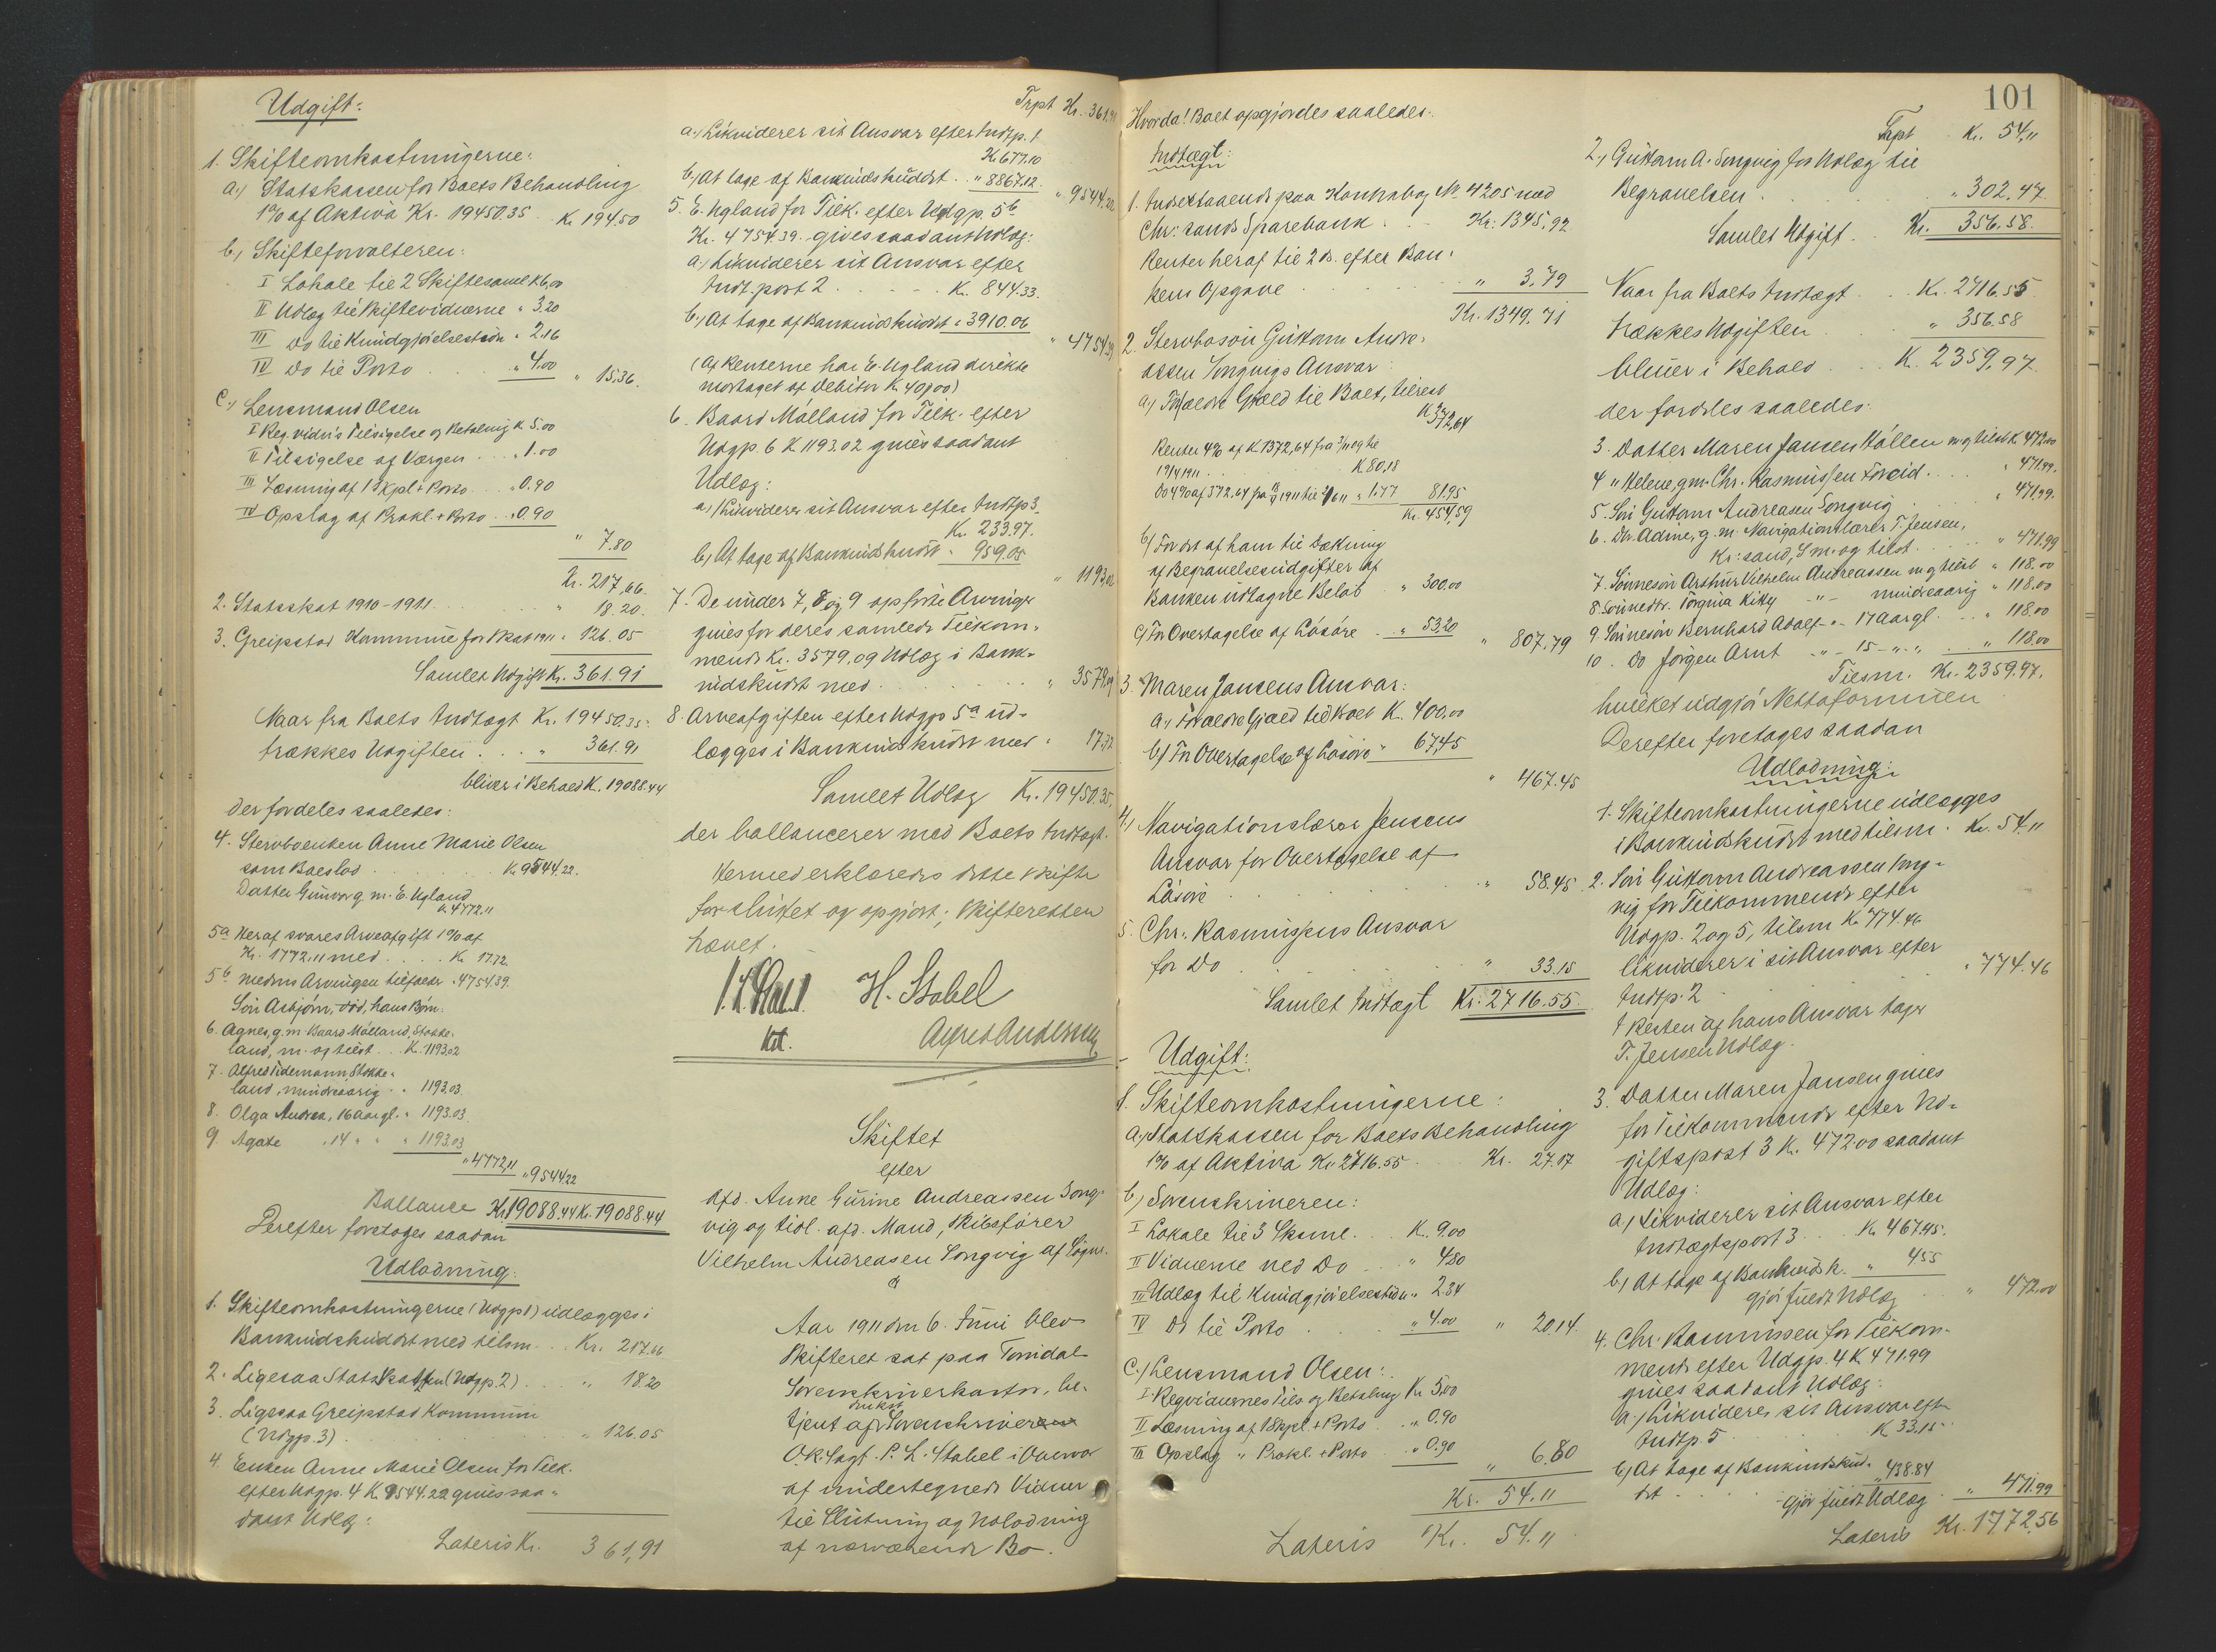 Udgift:
1. Skifteomkostningerne:
a.) Statskassen for Boets Behandling
1% af Aktiva Kr. 19450.35 . . Kr. 194.50
b.) Skifteforvalteren:
I Lokale til 2 Skiftesaml. K 6,00
II Udlæg til Skiftevidnerne " 3.20
III Do til Kundgjørelsestidn. " 2.16
IV Do til Porto . . " 4.00 " 15.36.
c.) Lensmand Olsen
I Reg. vidn's Tilsigelse og Betaling K 5.00
II Tilsigelse af Værgen . . " 1.00
III Læsning af 1 Skpl + Porto . . " 0.90
IV Opslag af Prokl. + Porto . . " 0.90
" 7.80
Kr. 217,66.
2. Statsskat 1910-1911 . . " 18.20.
3. Greipstad Kommune for Skat 1911 " 126.05
Samlet Udgift Kr. 361.91
Naar fra Boets Indtægt Kr. 19450.35.
trækkes Udgiften . . . " 361.91
bliver i Behold K. 19088.44
der fordeles saaledes:
4. Stervboenken Anne Marie Olsen
som Boeslod . . . K. 9544.22.
Datter Gunvor g. m. E. Ugland
K. 4772.11
5a Heraf svares Arveafgift 1% af
Kr. 1772.11 med . . . . K. 17.72.
5b medens Arvingen tilfalder " 4754.39.
Søn Asbjørn, død, hans Børn:
6. Agnes, g. m. Baard Mölland, Stokke-
land, m. og tilst. . . K. 1193.02
7. Alfred Tidemann Stokke-
land, mindreaarig " 1193.03.
8. Olga Andrea, 16 aar gl. " 1193.03.
9. Agate " 14 " " " 1193.03
" 4772,11 " 9544.22
Ballance Kr. 19088.44 Kr. 19088.44
Derefter foretoges saadan
Udlodning:
1. Skifteomkostningerne (Udgp 1) udlægges i
Bankindskuddet med tilsm . . Kr. 217.66
2. Ligesaa Statskassen (Udgp. 2) . . " 18.20
3. Ligesaa Greipstad Kommune
(Udgp. 3) . . . " 126.05
4. Enken Anne Marie Olsen for Tilk.
efter Udgp. 4 K. 9544.22 gives saa-
dant Udlæg:
Lateris Kr. 361,91
Trpt Kr. 361.91
a.) Likviderer sit Ansvar efter Indtp. 1
K 677.10
b.) At tage af Bankindskuddet . . " 8867.12. " 9544.22
5. E. Ugland for Tilk. efter Udgp. 5b
Kr. 4754.39. gives saadant Udlæg:
a.) Likviderer sit Ansvar efter
Indt. post 2 . . . . K. 844.33.
b.) At tage af Bankindskuddet " 3910.06
" 4754.39
(Af Renterne har E. Ugland direkte
modtaget af Debitor K. 40,00)
6. Baard Mölland for Tilk. efter
Udgp. 6 K 1193.02 gives saadant
Udlæg:
a.) Likviderer sit Ansvar efter Indtp 3.
Kr. 233.97.
b.) At tage af Bankindskuddet " 959.05
" 1193.02
7. De under 7, 8 og 9 opførte Arvinger
gives for deres samlede Tilkom-
mende Kr. 3579,09 Udlæg i Bank-
indskuddet med . . . " 3579.09
8. Arveafgiften efter Udgp 5a ud-
lægges i Bankindskuddet med " 17.72
Samlet Udlæg Kr. 19450.35.
der ballancerer med Boets Indtægt.
Hermed erklæredes dette Skifte
for sluttet og opgjort; Skifteretten
hævet.
H. Stabel
Alfred Andersen
Skiftet
efter
afd. Anne Gurine Andreassen Song-
vig og tidl. afd. Mand, Skibsfører
Vilhelm Andreasen Songvig af Søgne.
Aar 1911 den 6. Juni blev
Skifteret sat paa Torridal
Sorenskriverkontor, be-
tjent af Sorenskriveren
O.R. Sagf. P. L. Stabel i Overvær
af undertegnede Vidner
til Slutning og Udlodning
af nærværende Bo.
101
Hvorda! Boet opgjordes saaledes:
Indtægt:
1. Indestaaende paa Kontrabog No 4205 med
Chr: sands Sparebank . . Kr: 1345,92
Renter heraf til 2 ds. efter Ban-
kens Opgave . . . " 3,79
Kr. 1349,71
2. Stervbosøn Guttorm Andre-
assen Songvigs Ansvar:
a.) Forældre Gjæld til Boet, tilrest
K. 372,64
Renter 4% af K 1372,64 fra
19/4 1911 . . K 80,18
Do 4% af 372.64 fra 1911 til 2/6 11 " 1.77 81.95
Kr. 454,59
b.) For det af ham til Dækning
af Begravelsesudgifter af
Banken udtagne Beløb " 300,00
c.) For Overtagelse af Løsøre . . " 53,20
" 807,79
3. Maren Jansens Ansvar:
a.) Forældre Gjæld til Boet K. 400,00
b.) For Overtagelse af Løsøre " 67,45
" 467.45
4.) Navigationslærer Jensens
Ansvar for Overtagelse af
Løsøre . . . " 58.45
5. Chr. Rasmussens Ansvar
for Do . . . " 33.15
Samlet Indtægt Kr. 2716.55
Udgift:
1. Skifteomkostningerne:
a.) Statskassen for Boets Behandling
1% af Aktiva Kr 2716.55 . . Kr. 27.17
b.) Sorenskriveren:
I Lokale til 3 Sksml. . . K. 9.00
II Vidnerne ved Do . . " 4.80
III Udlæg til Kundgjørelsestidn. " 2.34
IV Do til Porto . . " 4.00 " 20.14.
c.) Lensmand Olsen:
I Regvidnernes Tils og Betaling Kr 5,00
II Læsning af 1 Skpl. + Porto . . " 0.90
III Opslag " Prokl. + Porto . . " 0.90 " 6.80
Kr. 54.11
Lateris Kr. 54.11
Trpt Kr. 54,11
2.) Guttorm A. Songvig for Udlæg til
Begravelsen . . . " 302,47.
Samlet Udgift . . Kr. 356.58.
Naar fra Boets Indtægt . . K. 2716.55
trækkes Udgiften . . " 356.58
bliver i Behold . . K. 2359,97
der fordeles saaledes:
3. Datter Maren Jansen Hållen m og tilst K. 472.00
4 " Helene, gm. Chr. Rasmussen . . " 471.99.
5. Søn Guttorm Andreasen Songvig . . " 471.99.
6. Dtr. Adine, g. m. Navigationslærer T. Jensen,
Kr:sand, S m. og tilst. . . . " 471.99
7. Sønnesøn Arthur Vilhelm Andreassen m og tilst " 118.00
8. Sønnedtr. Jørgina Kitty " mindreaarig " 118.00
9. Sønnesøn Bernhard Adolf " 17 aar gl. . . " 118.00
10. Do Jørgen Arnt " 15 " " . . " 118.00
Tilsm. Kr. 2359.97.
hvilket udgjør Nettoformuen
Derefter foretoges saadan
Udlodning:
1. Skifteomkostningerne udlægges
i Bankindskuddet med tilsm. Kr. 54.11
2. Søn Guttorm Andreassen Song-
vig for Tilkommende efter
Udgp. 2 og 5, tilsm K. 774.46
likviderer i sit Ansvar efter
Indtp. 2 " 774.46
I Resten af hans Ansvar tager
T. Jensen Udlæg.
3. Datter Maren Jansen gives
for Tilkommende efter Ud-
giftspost 3 K. 472.00 saadant
Udlæg:
a.) Likviderer sit Ansvar efter
Indtægtspost 3 . . K. 467.45.
b.) At tage af Bankindsk. " 4.55
gjør fuldt Udlæg " 472.00
4. Chr. Rasmussen for Tilkom-
mende efter Udgp. 4 K 471.99
gives saadant Udlæg:
a.) Likviderer sit Ansvar eft
Indtp. 5 K 33.15.
b.) At tage af Bankindskud-
det . . " 438.84
gjør fuldt Udlæg " 471.99
Lateris Kr. 1772,56